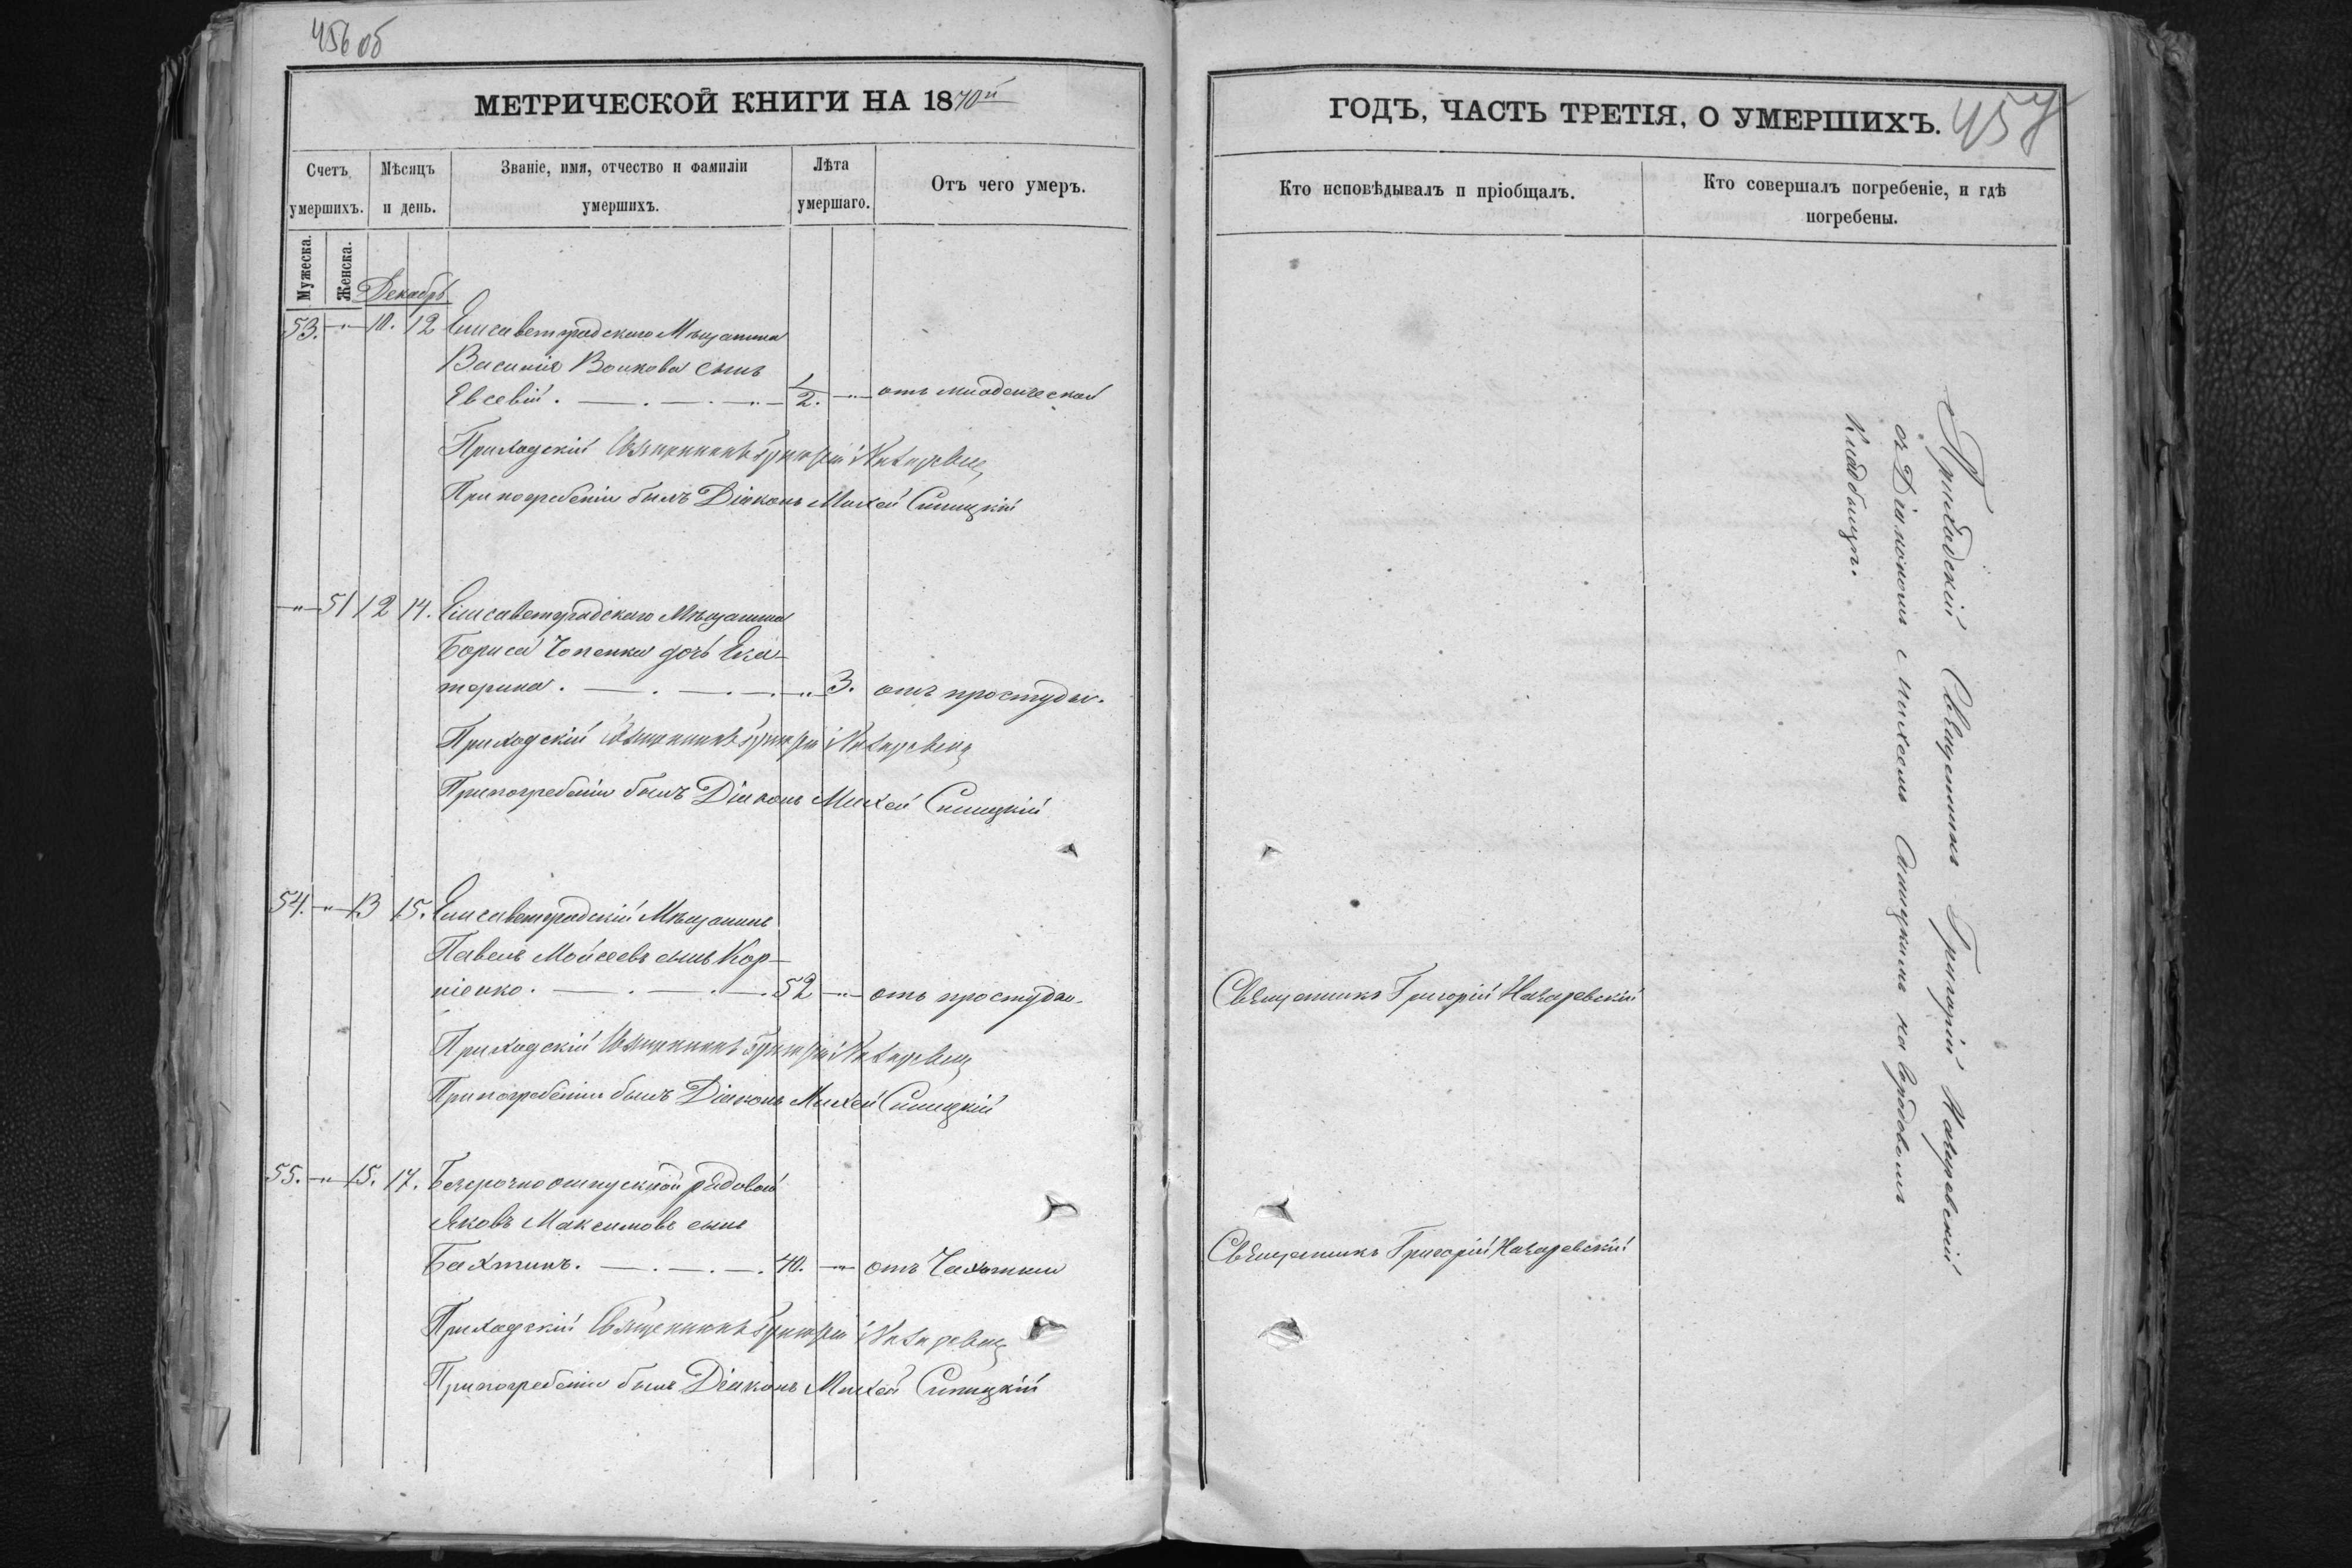 456 об
МЕТРИЧЕСКОЙ КНИГИ НА 1870й
Счетъ умершихъ.
Мѣсяцъ и день.
Званіе, имя, отчество и фамиліи умершихъ.
Лѣта умершаго.
Отъ чего умеръ.
Мужеска.
Женска.
Декабрь
53. -"- 10. 12 Елисаветградскаго Мѣщанина
Василія Волкова сынъ
Евсевій. 1/2. -"- отъ младенческой
Приходскій Священникъ Григорій Назаревскій
При погребеніи былъ Діаконъ Михей Синицкій
-"- 51 12 14. Елисаветградскаго Мѣщанина
Бориса Чопенка дочь Ека-
терина. -"- 3. отъ простуды.
Приходскій Священникъ Григорій Назаревскій
При погребеніи былъ Діаконъ Михей Синицкій
54. -"- 13 15. Елисаветградскій Мѣщанинъ
Павелъ Мойсеевъ сынъ Кор-
ніенко. 52 -"- отъ простуды
Приходскій Священникъ Григорій Назаревскій
При погребеніи былъ Діаконъ Михей Синицкій
55. -"- 15. 17. Безсрочноотпускной рядовой
Яковъ Максимовъ сынъ
Бахтинъ. 40. -"- отъ Чахотки
Приходскій Священникъ Григорій Назаревскій
При погребеніи былъ Діаконъ Михей Синицкій
ГОДЪ, ЧАСТЬ ТРЕТІЯ, О УМЕРШИХЪ.
457
Кто исповѣдывалъ и пріобщалъ.
Кто совершалъ погребеніе, и гдѣ погребены.
Священникъ Григорій Назаревскій
Священникъ Григорій Назаревскій
Приходскій Священникъ Григорій Назаревскій
съ Діакономъ Михеемъ Синицкимъ на городовомъ
Кладбищѣ.